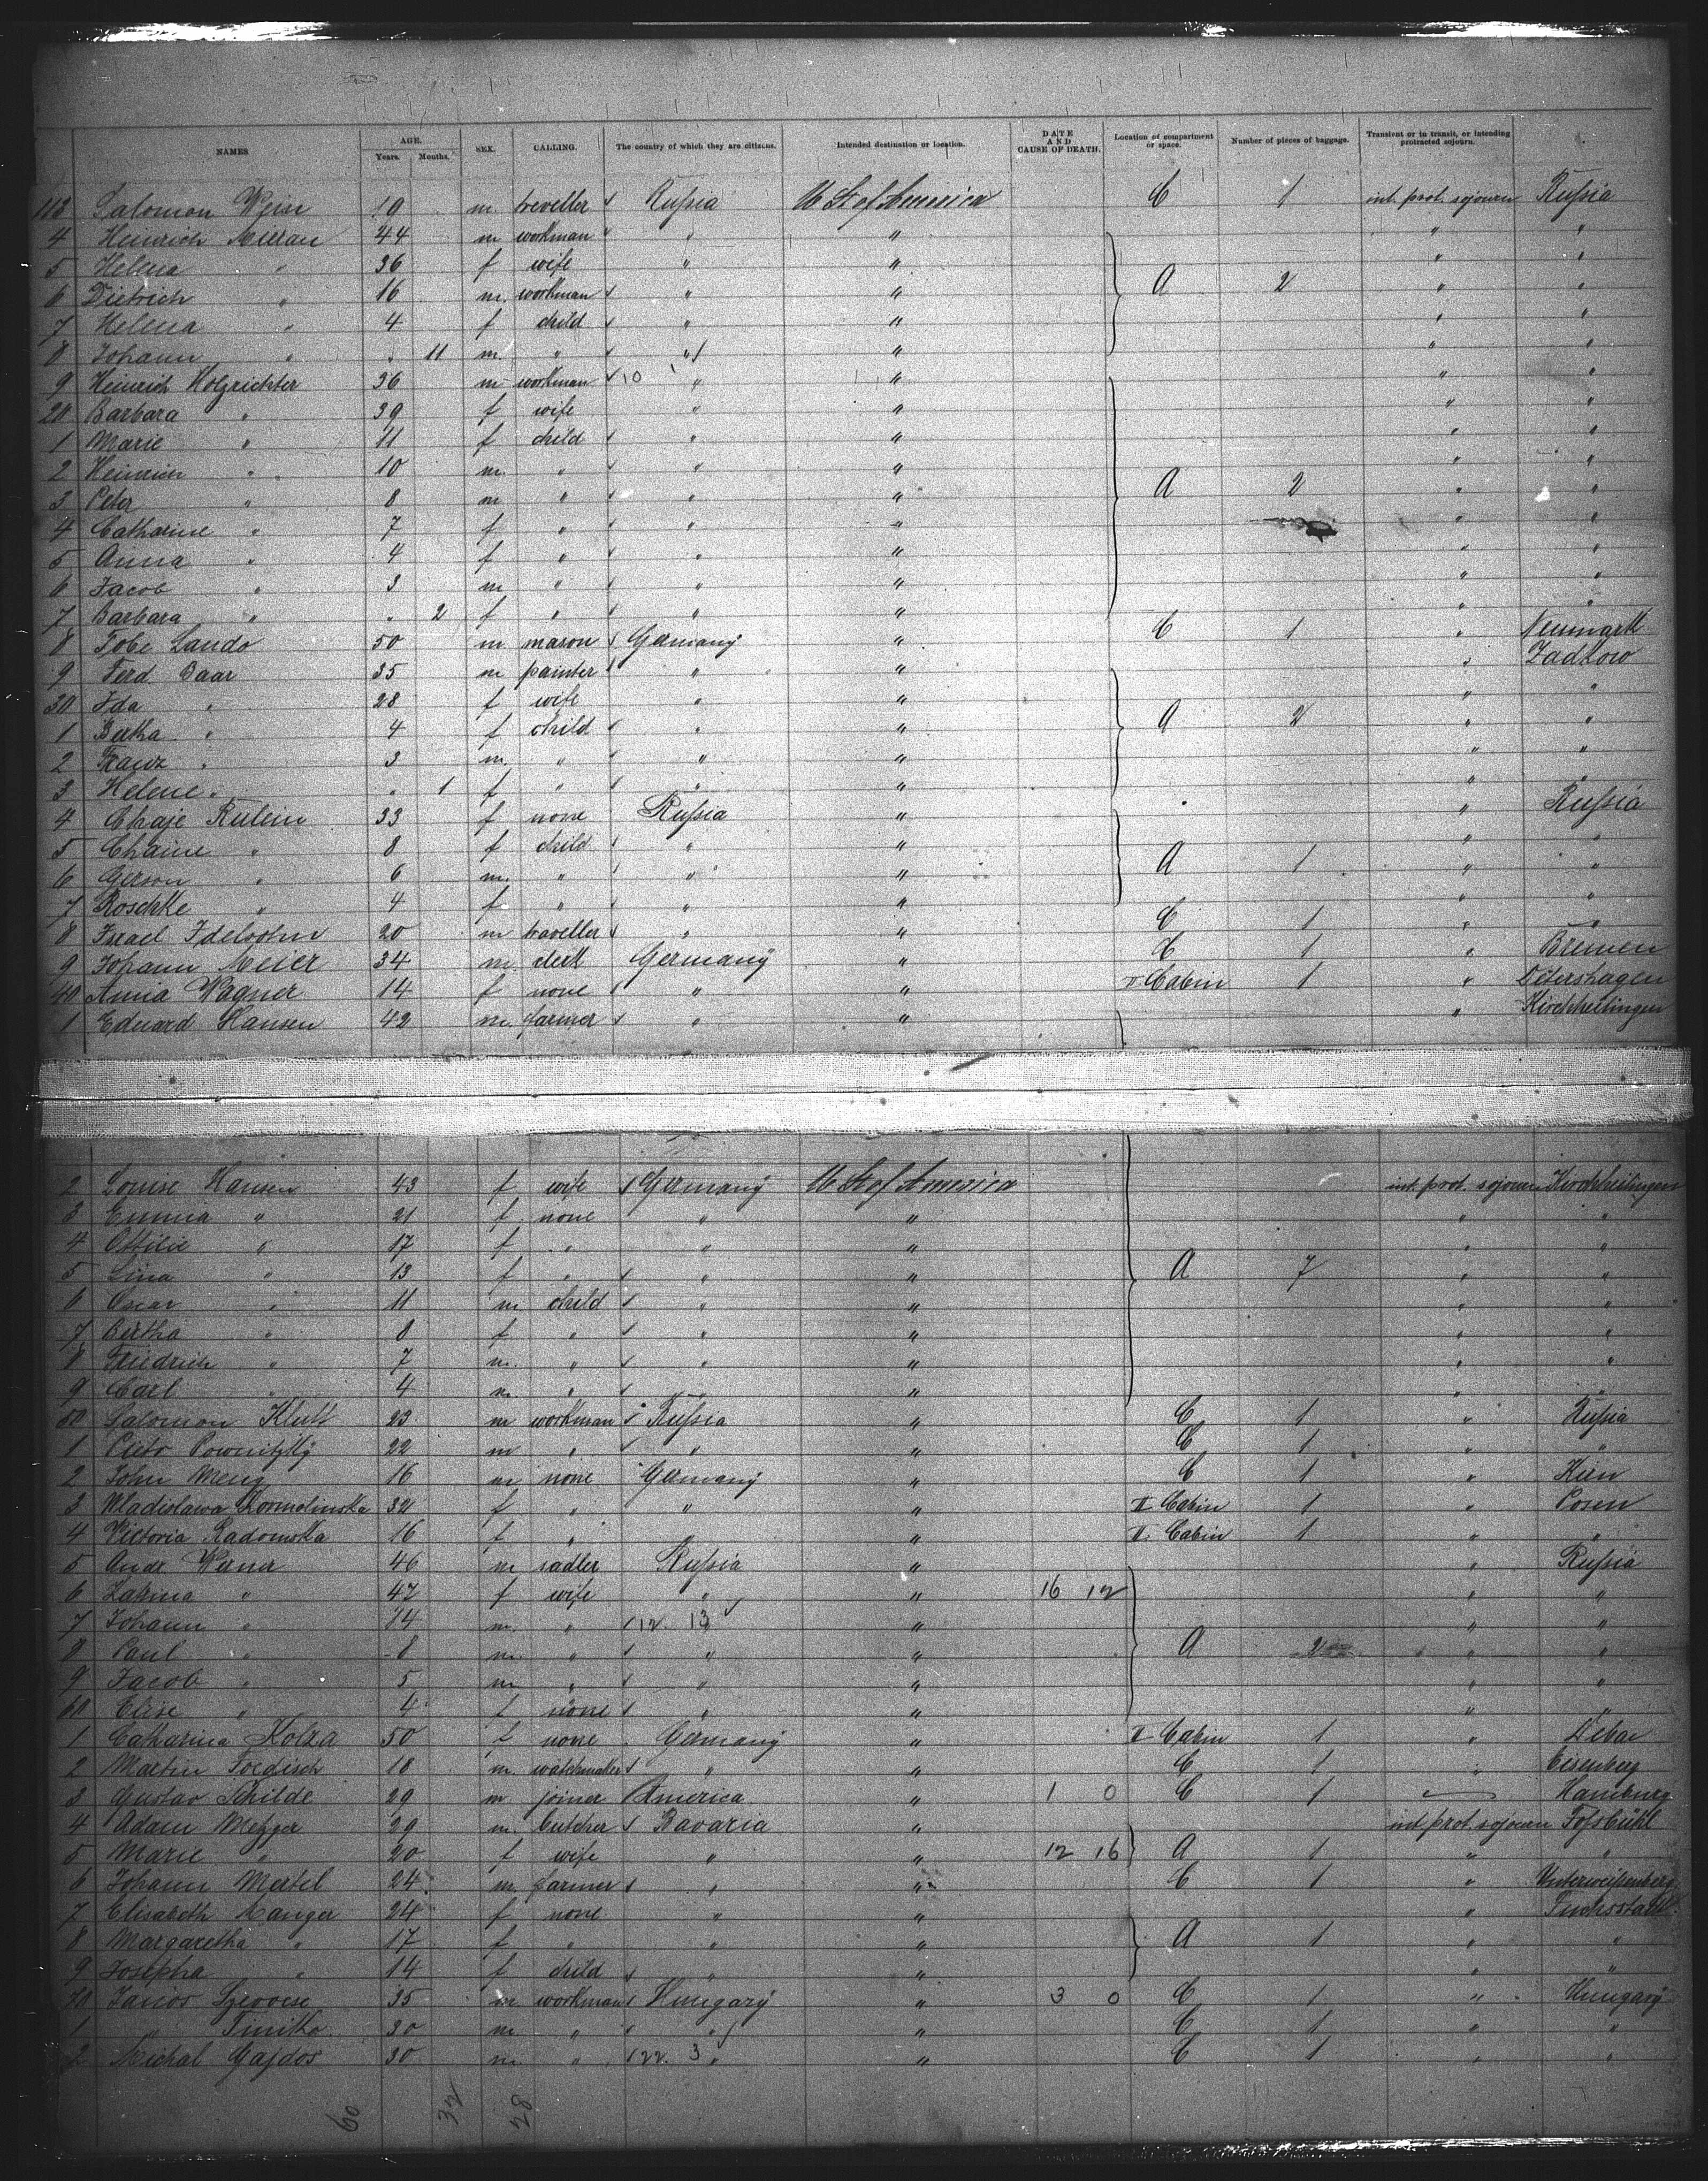 NAMES AGE. Years. Months. SEX. CALLING. The country of which they are citizens. Intended destination or location. DATE AND CAUSE OF DEATH. Location of compartment or space. Number of pieces of baggage. Transient or in transit, or intending protracted sojourn.
113 Salomon 19 m. treveller Rußia U St of America C 1 int. prot. sojourn Rußia
4 Heinrich 44 m workman " " " "
5 Helena " 36 f wife " " " "
6 Dietrich " 16 m. workman " " A 2 " "
7 Helena " 4 f child " " " "
8 Johann " " 11 m. " " " " "
9 Heinrich Holzrichter 36 m workman 10 " " " "
20 Barbara " 39 f wife " " " "
1 Marie " 11 f child " " " "
2 Heinrich " 10 m. " " " " "
3 Peter " 8 m " " " A 2 " "
4 Catharine " 7 f " " " " "
5 Anna " 4 f " " " " "
6 Jacob " 3 m " " " " "
7 Barbara " " 2 f " " " " "
8 Tobe Lando 50 m. mason Germany " C 1 " Neumark
9 Ferd Baar 35 m painter " " " Zadkow
30 Ida " 28 f wife " " " "
1 Bertha " 4 f child " " A 2 " "
2 Franz " 3 m. " " " " "
3 Helene " " 1 f " " " " "
4 Chaje Rubin 33 f none Rußia " " Rußia
5 Chaine " 8 f child " " " "
6 Gerson " 6 m. " " " A 1 " "
7 Roschke " 4 f " " " " "
8 Israel Idelsohn 20 m traveller " " C 1 " "
9 Johann Meier 34 m. clerk Germany " C 1 " Bremen
40 Anna Wagner 14 f none " " II Cabin 1 " Petershagen
1 Eduard Hansen 42 m. farmer " " " Kirchheilingen
2 Louise Hansen 43 f wife Germany U St of America int. prot. sojourn Kirchheilingen
3 Emma " 21 f. none " " " "
4 Ottilie " 17 f " " " " "
5 Lina " 13 f " " " A 7 " "
6 Oscar " 11 m child " " " "
7 Bertha " 8 f " " " " "
8 Friedrich " 7 m. " " " " "
9 Carl " 4 m. " " " " "
50 Salomon Klutt 23 m workman Rußia " C 1 " Rußia
1 Pieto 22 m " " " C 1 " "
2 John Meng 16 m none Germany " C 1 "
3 Wladislawa 32 f " " " II Cabin 1 " Posen
4 Victoria Radomska 16 f " " " II Cabin 1 " "
5 Andr Werner 46 m sadler Rußia " " Rußia
6 " 42 f wife " " 16 12 " "
7 Johann " 14 m. " 12. 13 " " "
8 Paul " 8 m. " " " A 2 " "
9 Jacob " 5 m " " " " "
60 Elise " 4 f none " " " "
1 Catharina Kolza 50 f none Germany " II Cabin 1 "
2 Martin 18 m. watchmaker " " C 1 " Eisenberg
3 Gustav Schilde 29 m joiner America " 1 0 C 1 Hamburg
4 Adam Metzger 29 m. butcher Bavaria " int. prot. sojourn Foßbühl
5 Marie " 20 f wife " " 12 16 A 1 " "
6 Johann Mertel 24 m farmer " " C 1 "
7 Elisabeth 24 f none " " " Fuchsstadt
8 Margaretha " 17 f " " " A 1 " "
9 Josepha " 14 f child " " " "
70 Janos 35 m workman Hungary " 3 0 C 1 " Hungary
1 " 30 m " " " C 1 " "
2 Michal Gajdos 30 m. " 22. 3 " " C 1 " "
60 32 28